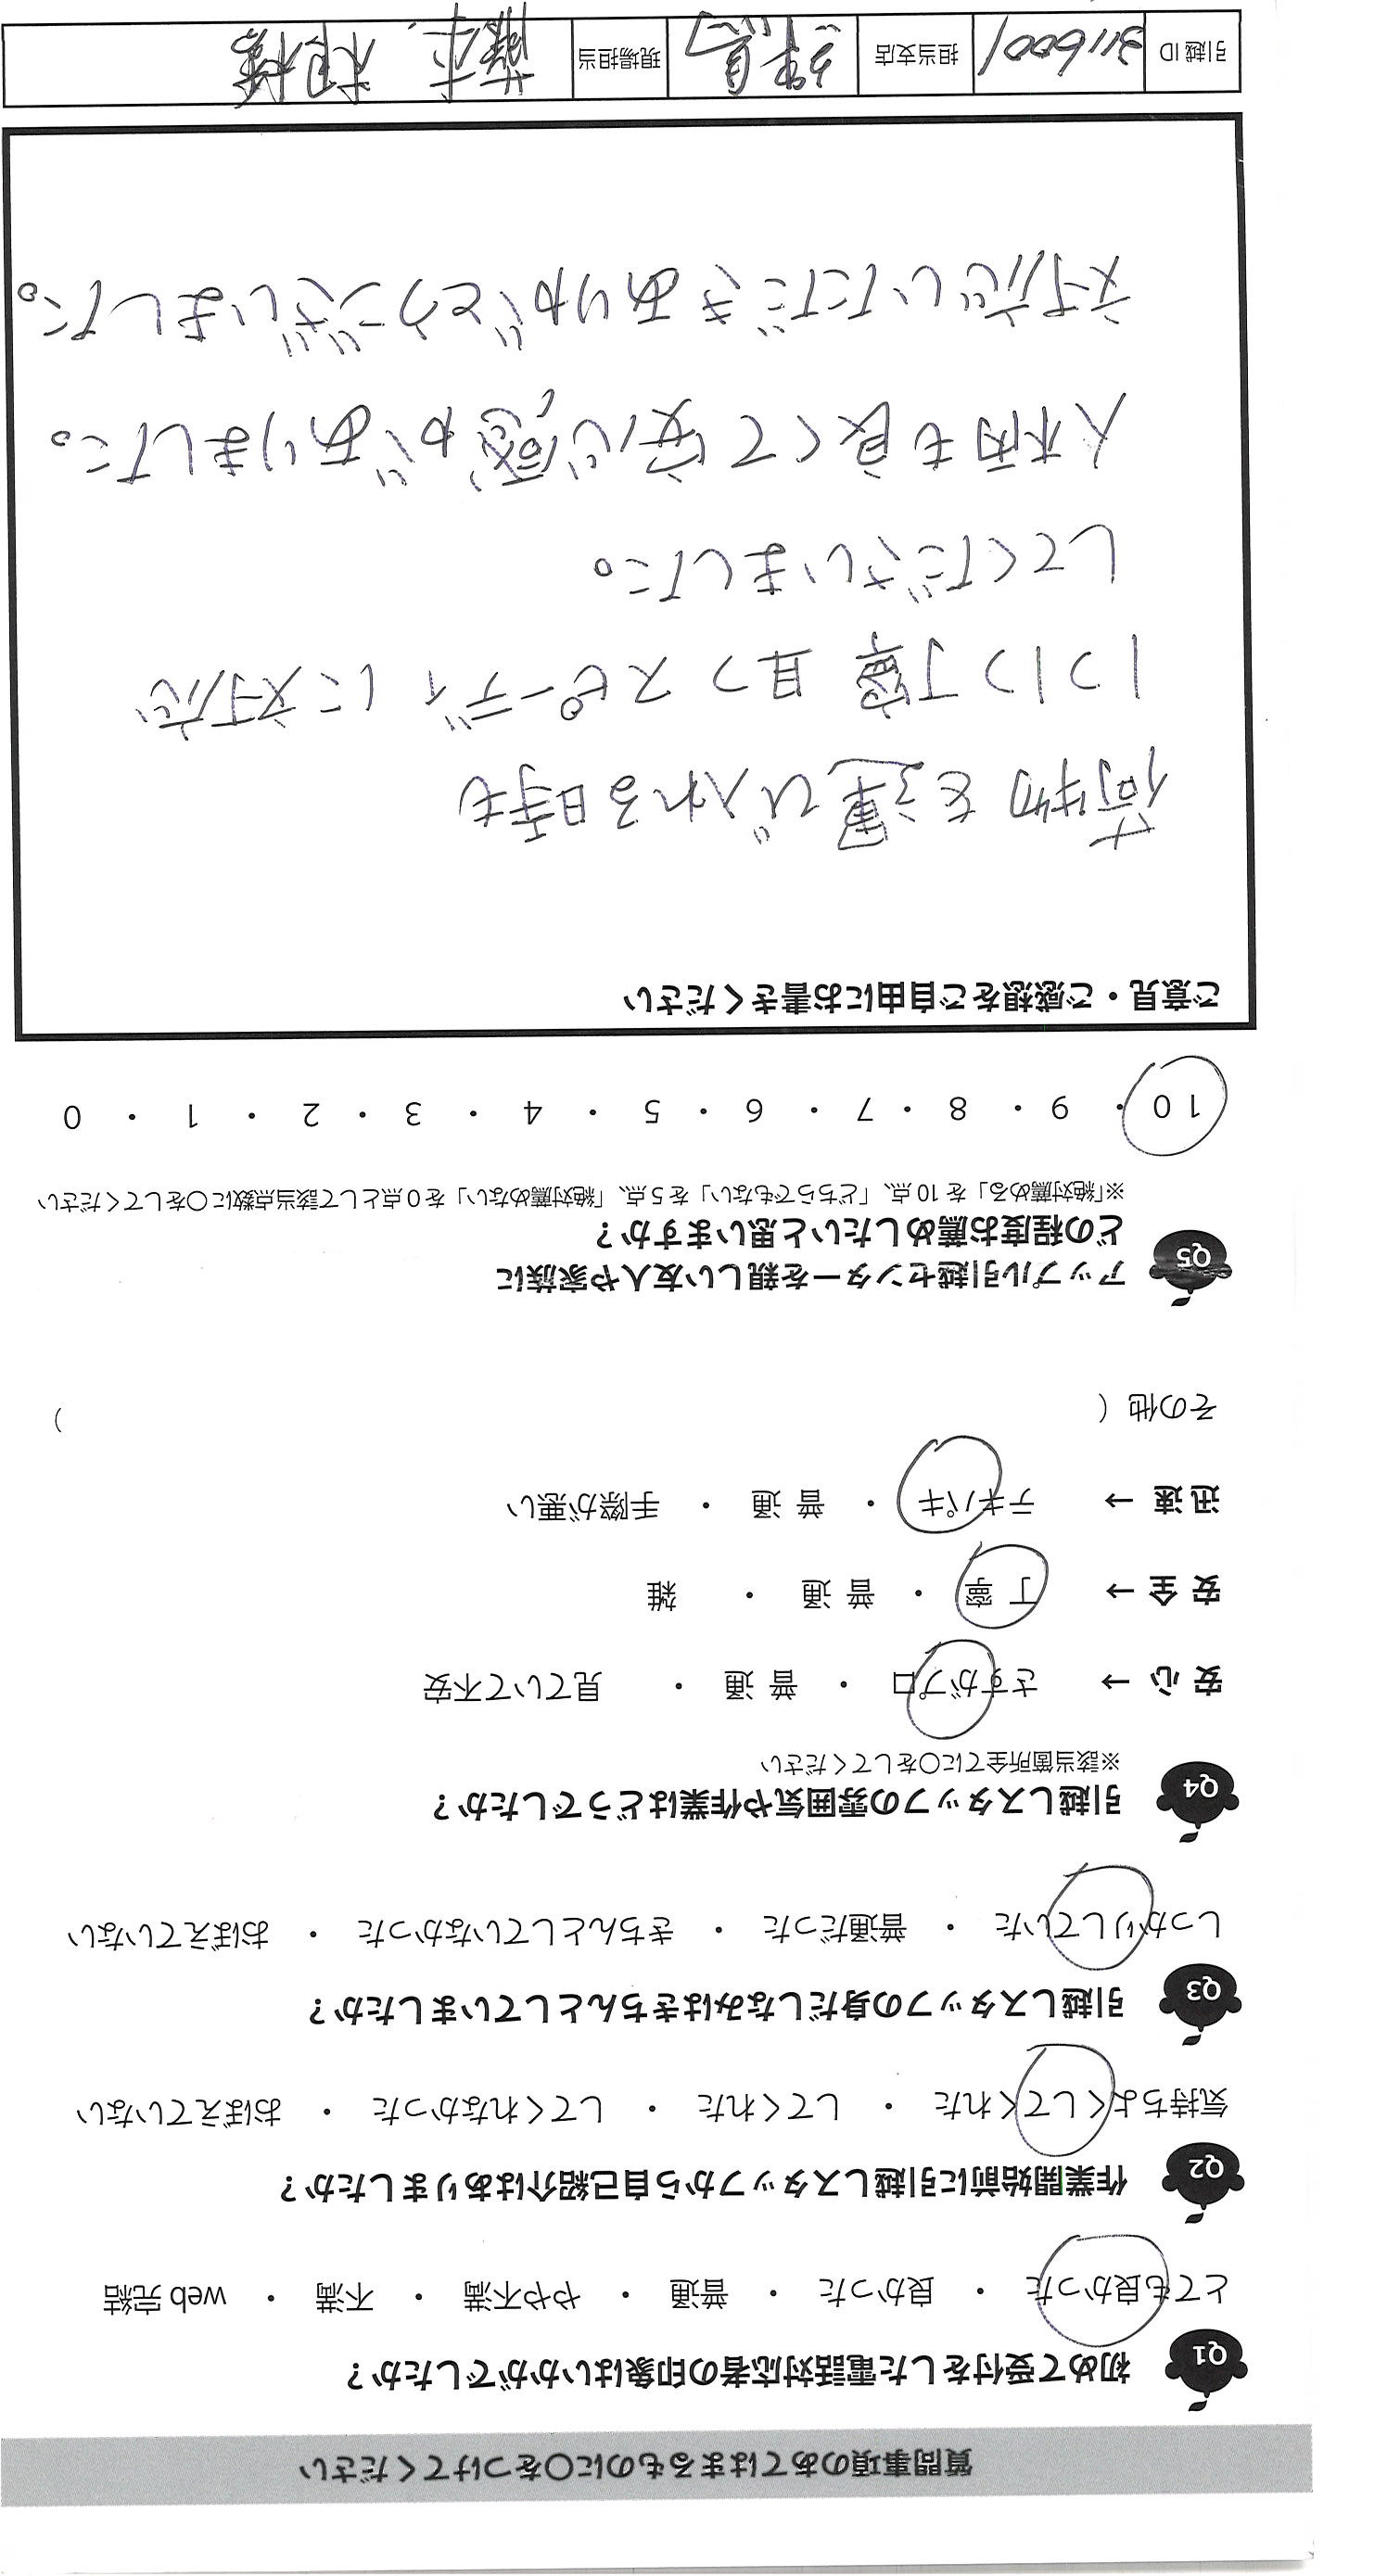 質問事項のあてはまるものに〇をつけてください
Q1 初めて受付をした電話対応者の印象はいかがでしたか？
とても良かった ・ 良かった ・ 普通 ・ やや不満 ・ 不満 ・ web 完結
Q2 作業開始前に引越しスタッフから自己紹介はありましたか？
気持ちよくしてくれた ・ してくれた ・ してくれなかった ・ おぼえていない
Q3 引越しスタッフの身だしなみはきちんとしていましたか？
しっかりしていた ・ 普通だった ・ きちんとしていなかった ・ おぼえていない
Q4 引越しスタッフの雰囲気や作業はどうでしたか？
※該当箇所全てに〇をしてください
安 心 → さすがプロ ・ 普 通 ・ 見ていて不安
安 全 → 丁 寧 ・ 普 通 ・ 雑
迅 速 → テキパキ ・ 普 通 ・ 手際が悪い
その他（ ）
Q5 アップル引越センターを親しい友人や家族に
どの程度お薦めしたいと思いますか？
※「絶対薦める」を 10 点、「どちらでもない」を 5 点、「絶対薦めない」を 0 点として該当点数に〇をしてください
10 ・ 9 ・ 8 ・ 7 ・ 6 ・ 5 ・ 4 ・ 3 ・ 2 ・ 1 ・ 0
ご意見・ご感想をご自由にお書きください
荷物を運び入れる時も
1つ1つ丁寧 且つ スピーディ に対応
してくださいました。
人柄も良くて安心感がありました。
対応いただきありがとうございました。
引越 ID 担当支店 現場担当